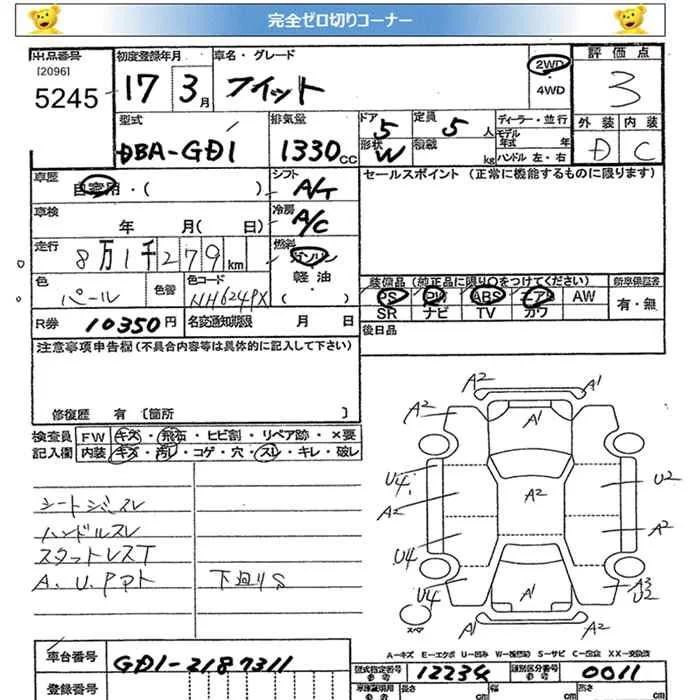 完全ゼロ切りコーナー
出品番号
[2096]
5245
初度登録年月
17 3月
車名・グレード
フィット
2WD
・
4WD
評価点
3
外装 内装
D C
型式
DBA-GD1
排気量
1330cc
ドア 5
形状 W
定員 5人
積載 kg
ディーラー・並行
モデル年式 年
ハンドル 左・右
車歴
自家用・( )
シフト
A/T
車検
年 月( 日)
冷房
A/C
走行
8万1千279km
燃料
ガソリン
・
軽油
・( )
色
パール
色替
色コード
NH624PX
R券 10350円
名変通知期限 月 日
セールスポイント(正常に機能するものに限ります)
装備品(純正品に限り○をつけてください)
PS PW ABS エアB AW
SR ナビ TV カワ
新車保証書
有・無
後日品
注意事項申告欄(不具合内容等は具体的に記入して下さい)
修復歴 有〔箇所 〕
検査員記入欄
FW キズ・飛石・ヒビ割・リペア跡・×要
内装 キズ・汚レ・コゲ・穴・スレ・キレ・破レ
シートシミスレ
ハンドルスレ
スタットレスT
A、U、PPホト
下廻りS
A2 A1
A2 A1
U4 U2
A2 A2
U4 A2
U4 A1 A3 U2
A1 A2
スペア
A-キズ E-エクボ U-凹み W-補修跡 S-サビ C-腐食 XX-交換済
車台番号 GD1-2187311
型式指定番号 参考 12234
類別区分番号 参考 0011
登録番号
長さ cm
幅 cm
高さ cm